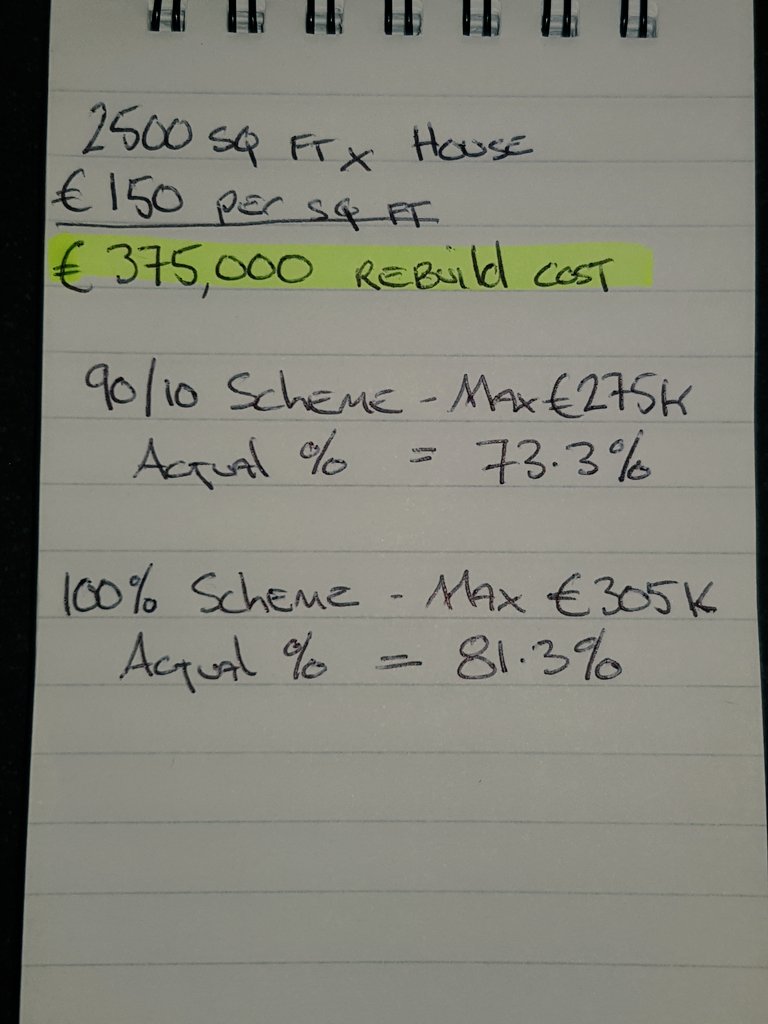 2500 SQ FT x HOUSE
€150 per SQ FT
€375,000 REBUILD COST
90/10 SCHEME - MAX €275K
ACTUAL % = 73.3%
100% SCHEME - MAX €305K
ACTUAL % = 81.3%